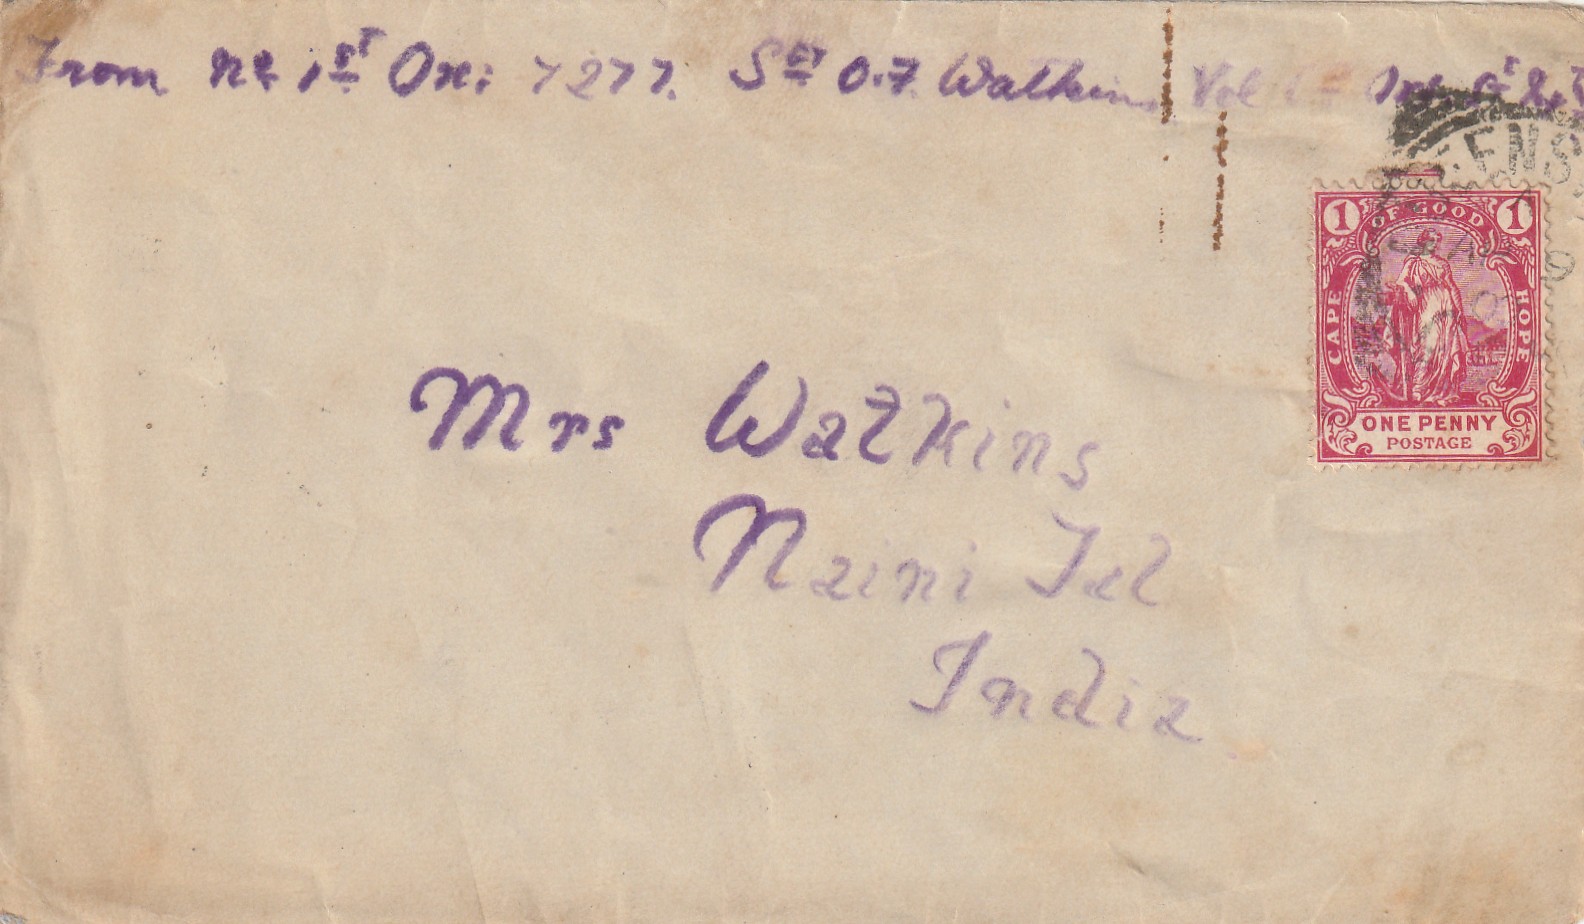 From No 1st Ox: 7277. Sgt O.F. Watkins Vol
ENS
1 OF GOOD 1
CAPE
HOPE
ONE PENNY
POSTAGE
Mrs Watkins
Naini Tal
India